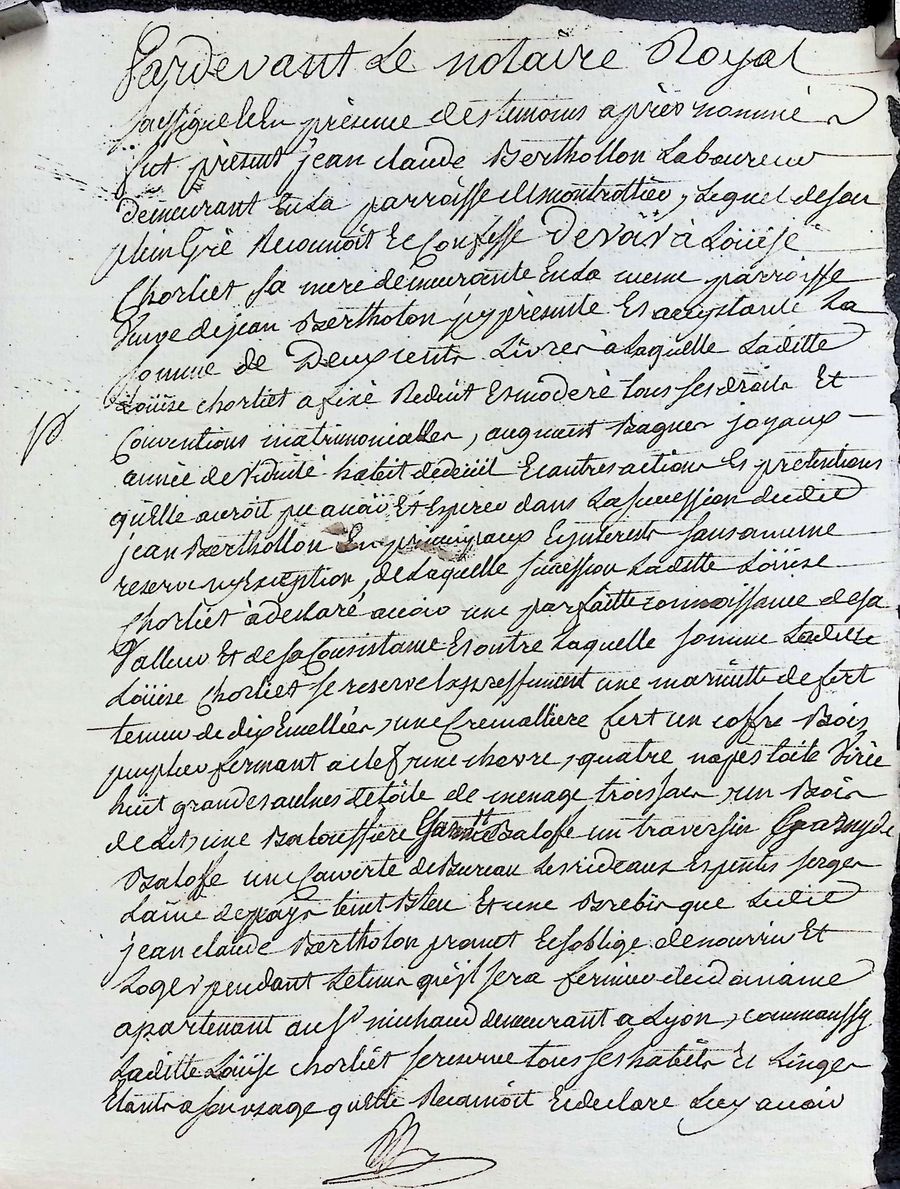 Pardevant Le notaire Royal
soussigné Et En présence des temoins après nommé
fut présent jean claude Berthollon Laboureur
demeurant En La parroisse de montrottier, Lequel de son
plein Gré Reconnoit Et Confesse devoir à Loüise
Chorliet sa mere demeurante En La meme parroisse
Veuve de jean Bertholon icy présente Et acceptante La
somme de Deux cents Livres à Laquelle Laditte
Loüise chorliet a fixé Reduit Et moderé tous ses droits Et
Conventions matrimonialles, augment Bagues joyaux
année de Viduité habit de deüil Et autres actions Et pretentions
qu'Elle auroit pu avoir Et Esperer dans La succession dudit
jean Berthollon En principaux Et interests sans aucune
reserve ny Exception, de Laquelle succession Laditte Loüise
Chorliet à declaré avoir une parfaitte connoissance de sa
Valleur Et de sa Consistance Et outre Laquelle somme Laditte
Loüise Chorliet se reserve Expressement une marmitte de fert
tenue de dix Emellier, une Cremalliere fert un coffre Bois
peuplier fermant a clef, une chevre, quatre napes toile
huit grandes aulnes de toile de menage trois sacs, un Bois
de Lit, une Baloussiere Garnitte Balofe un traversin Garny de
Balofe une Couverte de Bureau Les rideaux Et pentes serges
Laine de pays teint Bleu Et une Brebis que Ledit
jean claude Bertholon promet Et s'oblige de nourrir Et
Loger pendant Le tems qu'il sera fermier du domaine
apartenant au Sr michaud demeurant a Lyon, comm'aussy
Laditte Loüise chorliet se reserve tous ses habits Et Linges
Etants a son usage qu'elle Reconnoit Et declare Luy avoir